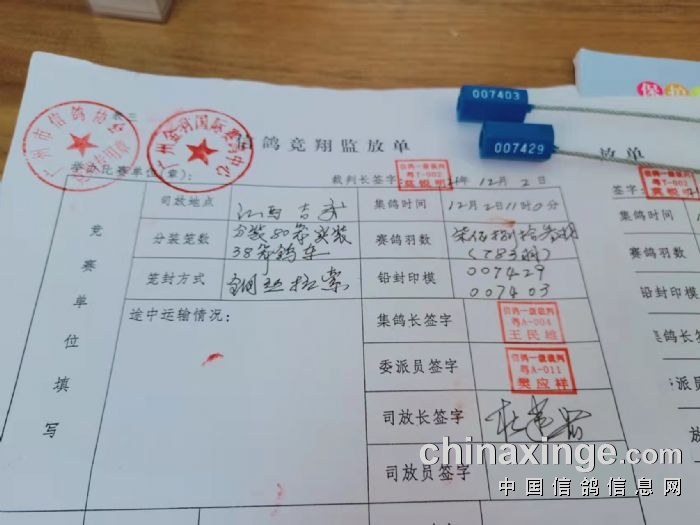 007403
007429
保护
联三
广州市信鸽协会
竞赛专用章
广州金翔国际赛鸽中心
信鸽竞翔监放单
放单
举办比赛单位(章):
裁判长签字:
信鸽一级裁判
粤T-002
年12月2日
签字:
信鸽一级裁判
粤T-002
司放地点
江西吉安
集鸽时间
12月2日11时0分
集鸽时间
分装笼数
分装80笼实装
38笼鸽车
赛鸽羽数
柒佰捌拾叁羽
(783羽)
赛鸽羽数
笼封方式
钢丝拉索
铅封印模
007429
007403
铅封印模
竞赛单位填写
途中运输情况:
集鸽长签字
信鸽一级裁判
粤A-004
王民雄
集鸽长签
委派员签字
信鸽一级裁判
粤A-011
樊应祥
派员签字
司放长签字
放
司放员签字
司
chinaxinge.com
中国信鸽信息网